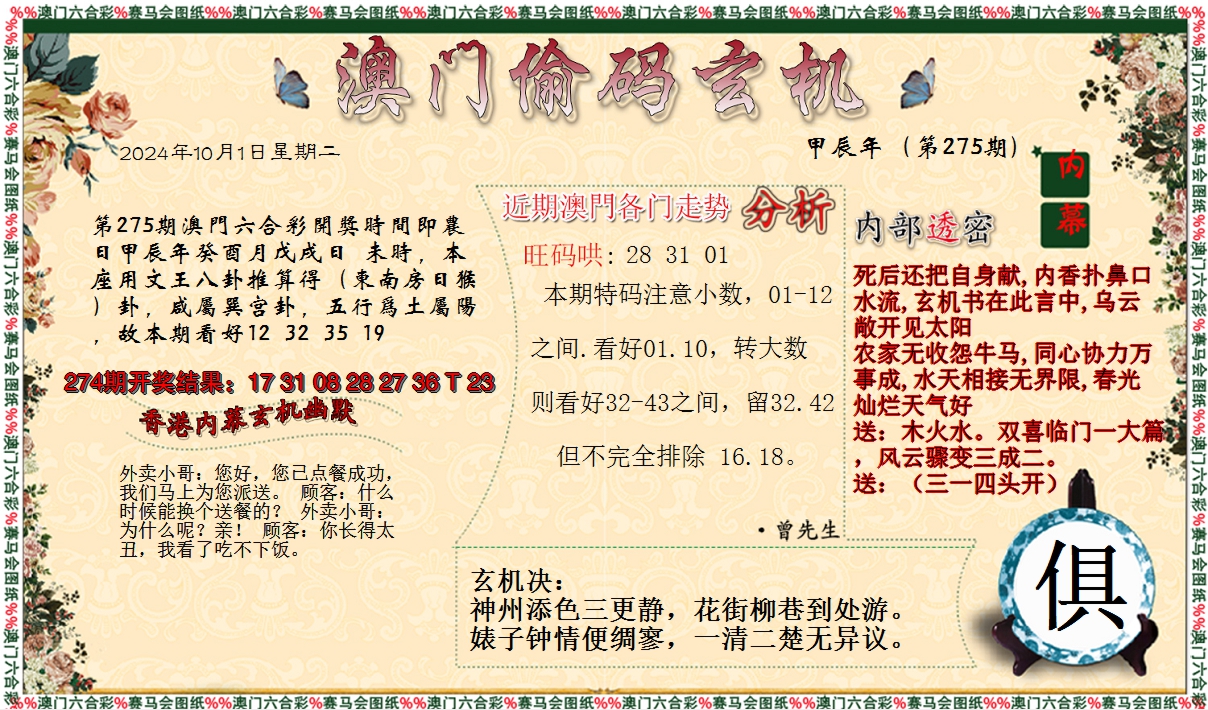 %%澳门六合彩%赛马会图纸%%澳门六合彩%赛马会图纸%%澳门六合彩%赛马会图纸%%澳门六合彩%赛马会图纸%%澳门六合彩%赛马会图纸%%澳门六合彩%赛马会图纸%%
澳门偷码玄机
2024年10月1日星期二
甲辰年（第275期）
第275期澳門六合彩開獎時間即農
日甲辰年癸酉月戊戌日 未時，本
座用文王八卦推算得（東南房日猴
）卦，咸屬巽宫卦，五行爲土屬陽
，故本期看好12 32 35 19
274期开奖结果：17 31 08 28 27 36 T 23
香港内幕玄机幽默
外卖小哥：您好，您已点餐成功，
我们马上为您派送。 顾客：什么
时候能换个送餐的？ 外卖小哥：
为什么呢？亲！ 顾客：你长得太
丑，我看了吃不下饭。
近期澳門各门走势 分析
旺码哄: 28 31 01
本期特码注意小数，01-12
之间.看好01.10，转大数
则看好32-43之间，留32.42
但不完全排除 16.18。
·曾先生
内幕
内部透密
死后还把自身献,内香扑鼻口
水流,玄机书在此言中,乌云
敞开见太阳
农家无收怨牛马,同心协力万
事成,水天相接无界限,春光
灿烂天气好
送：木火水。双喜临门一大篇
，风云骤变三成二。
送：（三一四头开）
玄机决：
神州添色三更静，花街柳巷到处游。
婊子钟情便绸寥，一清二楚无异议。
俱
%%澳门六合彩%赛马会图纸%%澳门六合彩%赛马会图纸%%澳门六合彩%赛马会图纸%%澳门六合彩%赛马会图纸%%澳门六合彩%赛马会图纸%%澳门六合彩%赛马会图纸%%